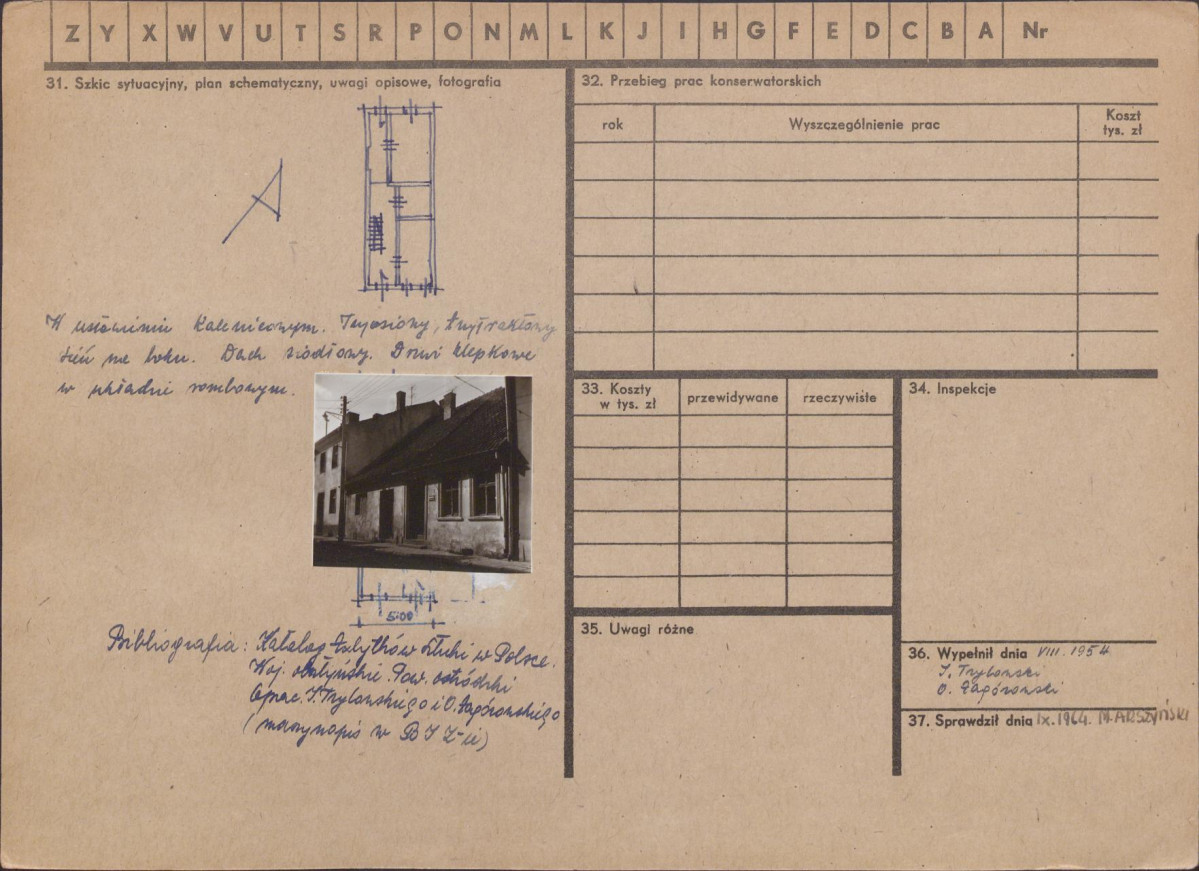 Z Y X W V U T S R P O N M L K J I H G F E D C B A Nr
31. Szkic sytuacyjny, plan schematyczny, uwagi opisowe, fotografia
W ustawieniu kalenicowym. Trzyosiowy, trzytraktowy
sień na boku. Dach siodłowy. Drzwi klepkowe
w układzie rombowym.
5.00
Bibliografia: Katalog Zabytków Sztuki w Polsce.
Woj. olsztyńskie. Pow. ostródzki
Oprac. i O.
(maszynopis w
32. Przebieg prac konserwatorskich
rok
Wyszczególnienie prac
Koszt
tys. zł
33. Koszty
w tys. zł
przewidywane
rzeczywiste
34. Inspekcje
35. Uwagi różne
36. Wypełnił dnia VIII. 1954
O.
37. Sprawdził dnia IX. 1964. M. ARSZYŃSKI